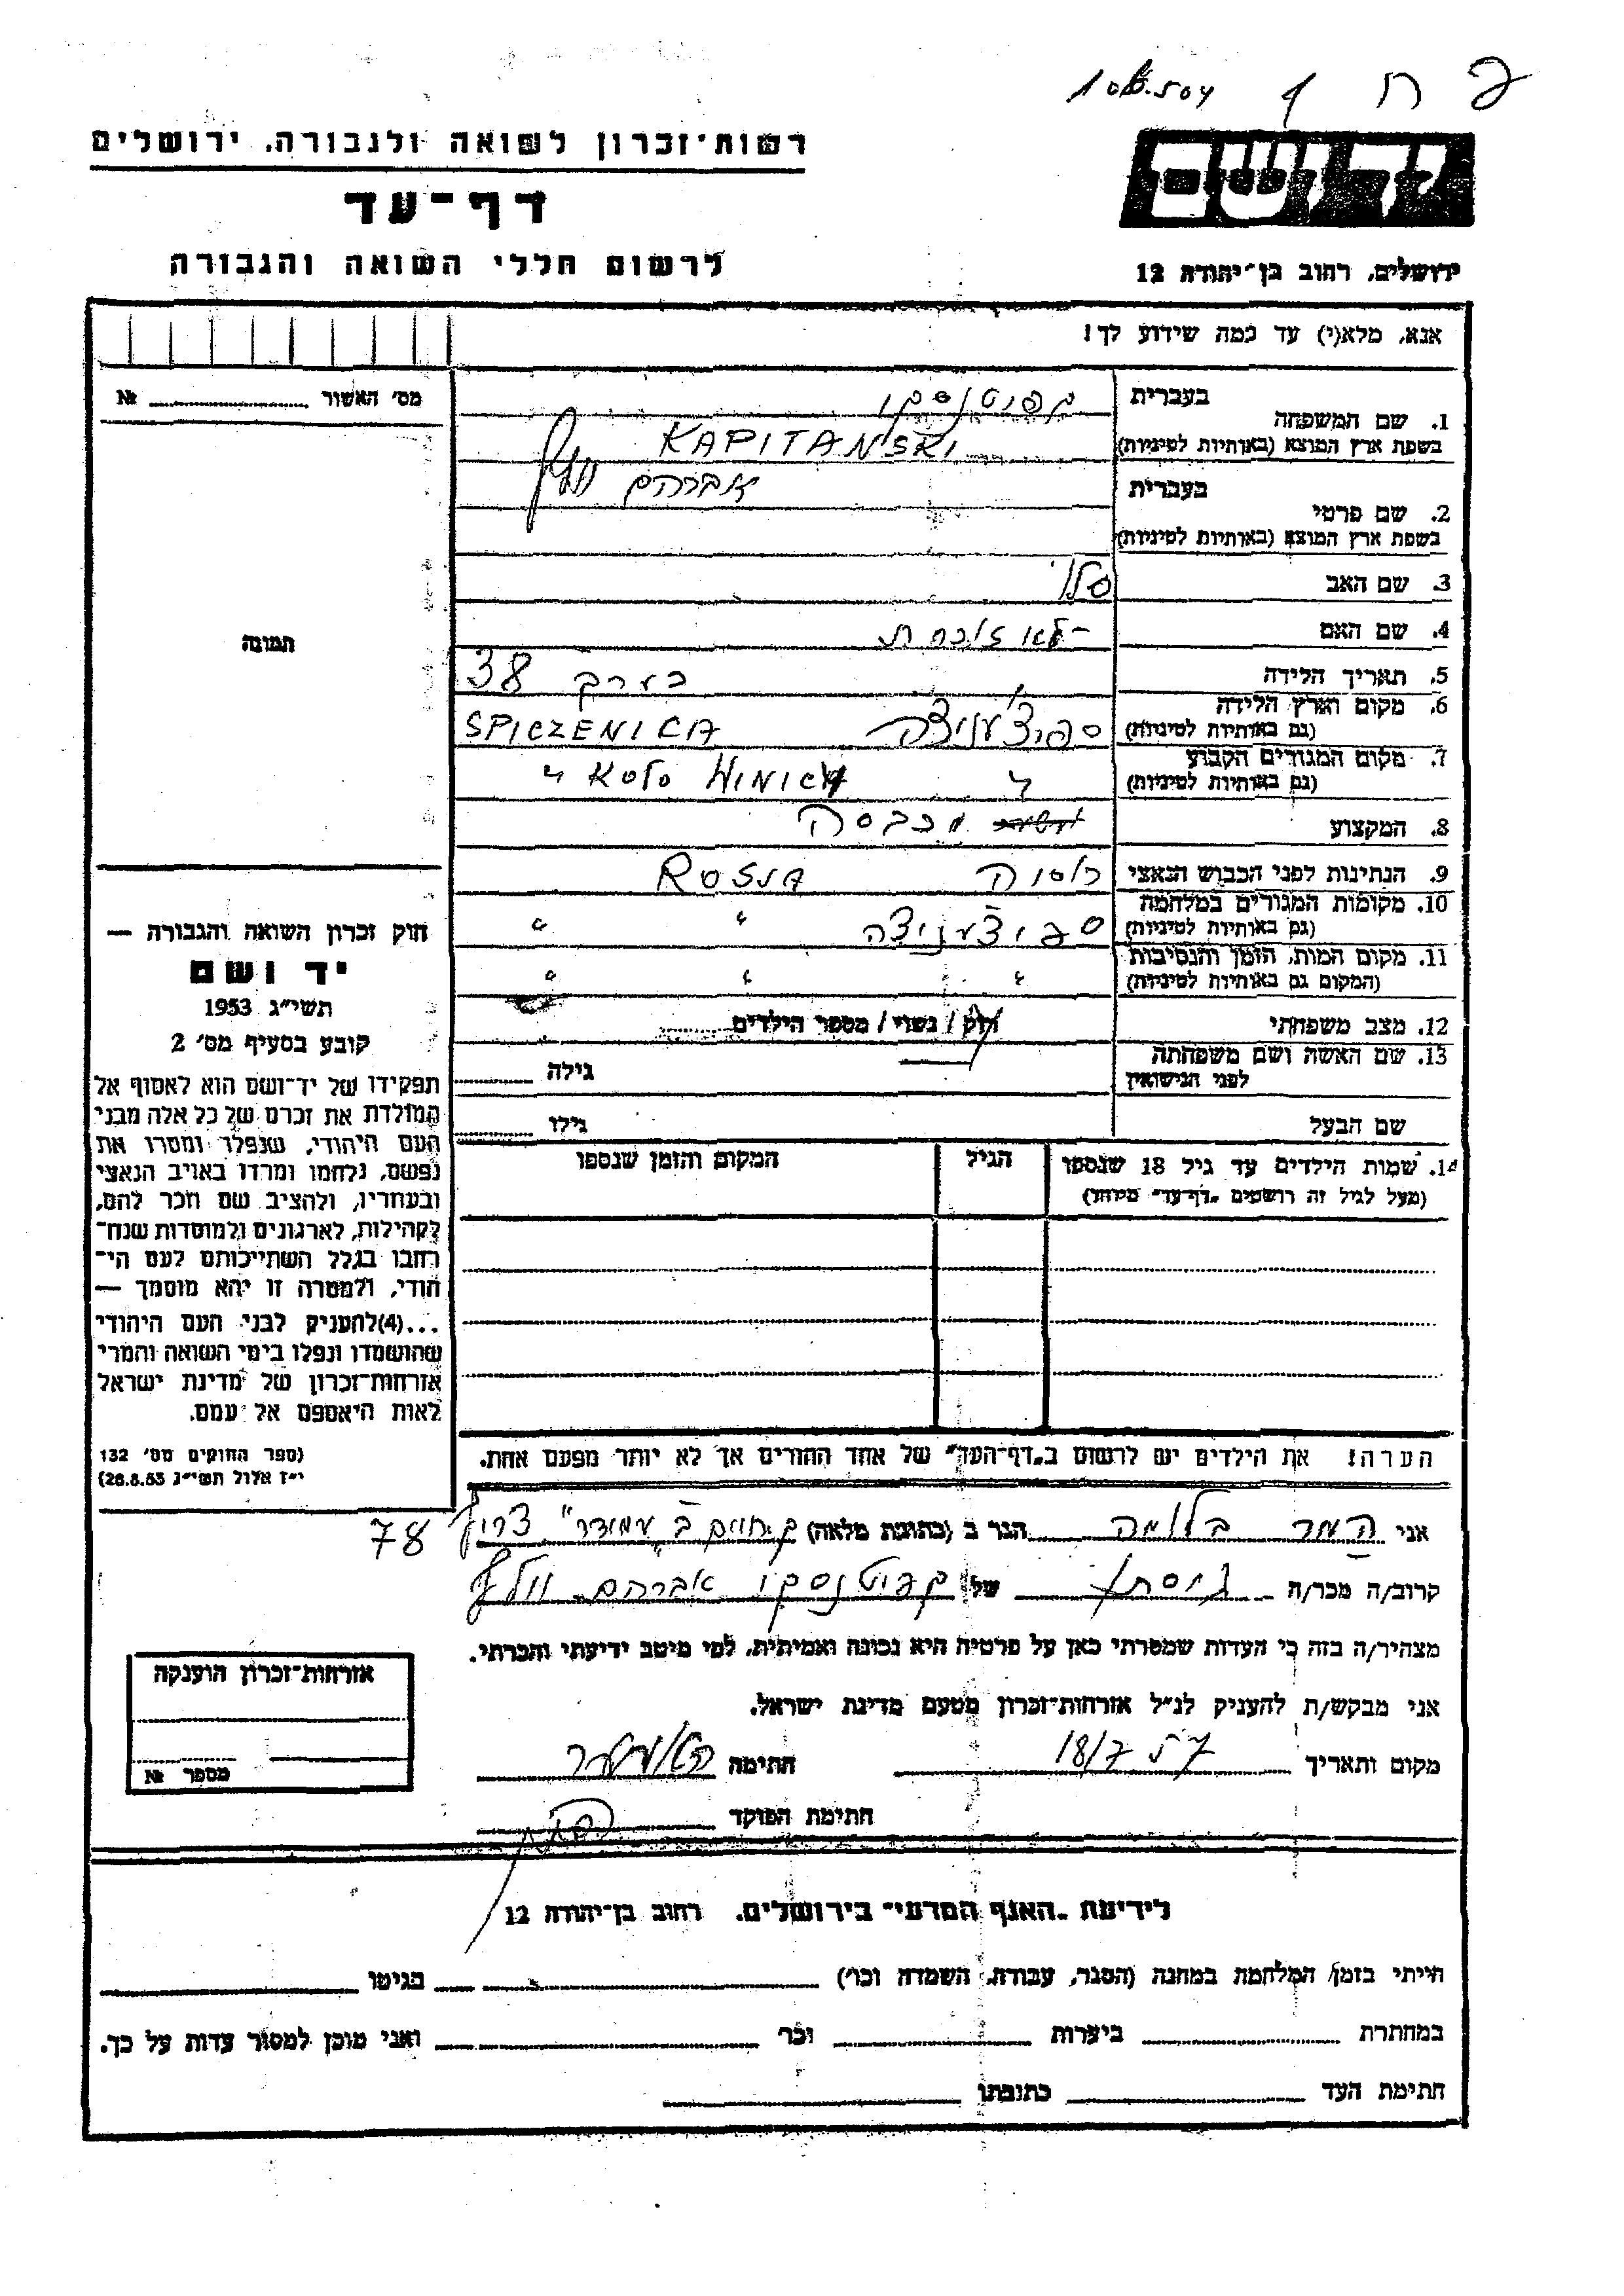 108.504
רשות־זכרון לשואה ולגבורה. ירושלים
יד ושם
דף־עד
לרשום חללי השואה והגבורה
ירושלים, רחוב בן־יהודה 12
אנא, מלא(י) עד כמה שידוע לך!
מס׳ האשור № 
1. שם המשפחה בעברית קפיטנסקי
בשפת ארץ המוצא (באותיות לטיניות) KAPITAŃSKI
2. שם פרטי בעברית אברהם וולף
בשפת ארץ המוצא (באותיות לטיניות)
3. שם האב
4. שם האם לא זוכרת
5. תאריך הלידה בערך 38
6. מקום וארץ הלידה ספיצ׳ניצה SPICZENICA
(גם באותיות לטיניות)
7. מקום המגורים הקבוע " KOLO WINICA "
(גם באותיות לטיניות)
8. המקצוע מכבסה
9. הנתינות לפני הכבוש הנאצי רוסיה ROSSIA
10. מקומות המגורים במלחמה ספיצ׳ניצה " "
(גם באותיות לטיניות)
11. מקום המות, הזמן והנסיבות " " "
(המקום גם באותיות לטיניות)
12. מצב משפחתי רוק / נשוי / מספר הילדים
13. שם האשה ושם משפחתה גילה
לפני הנישואין
שם הבעל גילו
14. שמות הילדים עד גיל 18 שנספו הגיל המקום והזמן שנספו
(מעל לגיל זה רושמים „דף־עד” מיוחד)
הערה! את הילדים יש לרשום ב„דף־העד” של אחד ההורים אך לא יותר מפעם אחת.
תמונה
חוק זכרון השואה והגבורה —
יד ושם
תשי״ג 1953
קובע בסעיף מס׳ 2
תפקידו של יד־ושם הוא לאסוף אל
המולדת את זכרם של כל אלה מבני
העם היהודי, שנפלו ומסרו את
נפשם, נלחמו ומרדו באויב הנאצי
ובעוזריו, ולהציב שם וזכר להם,
לקהילות, לארגונים ולמוסדות שנח־
רבו בגלל השתייכותם לעם הי־
הודי, ולמטרה זו יהא מוסמך —
...(4)להעניק לבני העם היהודי
שהושמדו ונפלו בימי השואה והמרי
אזרחות־זכרון של מדינת ישראל
לאות היאספם אל עמם.
(ספר החוקים מס׳ 132
י״ז אלול תשי״ג 28.8.53)
אני המר בלומה הגר ב (כתובת מלאה) ק. חיים ב׳ צריף 78
קרוב/ה מכר/ה גיסתו של קפיטנסקי אברהם וולף
מצהיר/ה בזה כי העדות שמסרתי כאן על פרטיה היא נכונה ואמיתית, לפי מיטב ידיעתי והכרתי.
אני מבקש/ת להעניק לנ״ל אזרחות־זכרון מטעם מדינת ישראל.
מקום ותאריך 18/7 57 חתימה
חתימת הפוקד
אזרחות־זכרון הוענקה
מספר №
לידיעת „האגף המדעי” בירושלים. רחוב בן־יהודה 12
הייתי בזמן המלחמה במחנה (הסגר, עבודה, השמדה וכו׳) בגיטו
במחתרת ביערות וכו׳ ואני מוכן למסור עדות על כך.
חתימת העד כתובתו